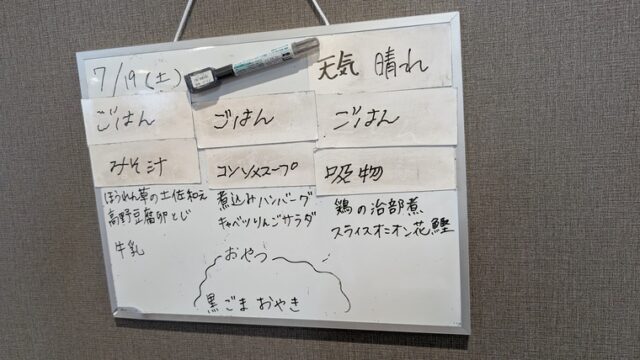 7/19(土)
天気 晴れ
ごはん
ごはん
ごはん
みそ汁
コンソメスープ
吸物
ほうれん草の土佐和え
高野豆腐卵とじ
牛乳
煮込みハンバーグ
キャベツりんごサラダ
鶏の治部煮
スライスオニオン花鰹
おやつ
黒ごまおやき